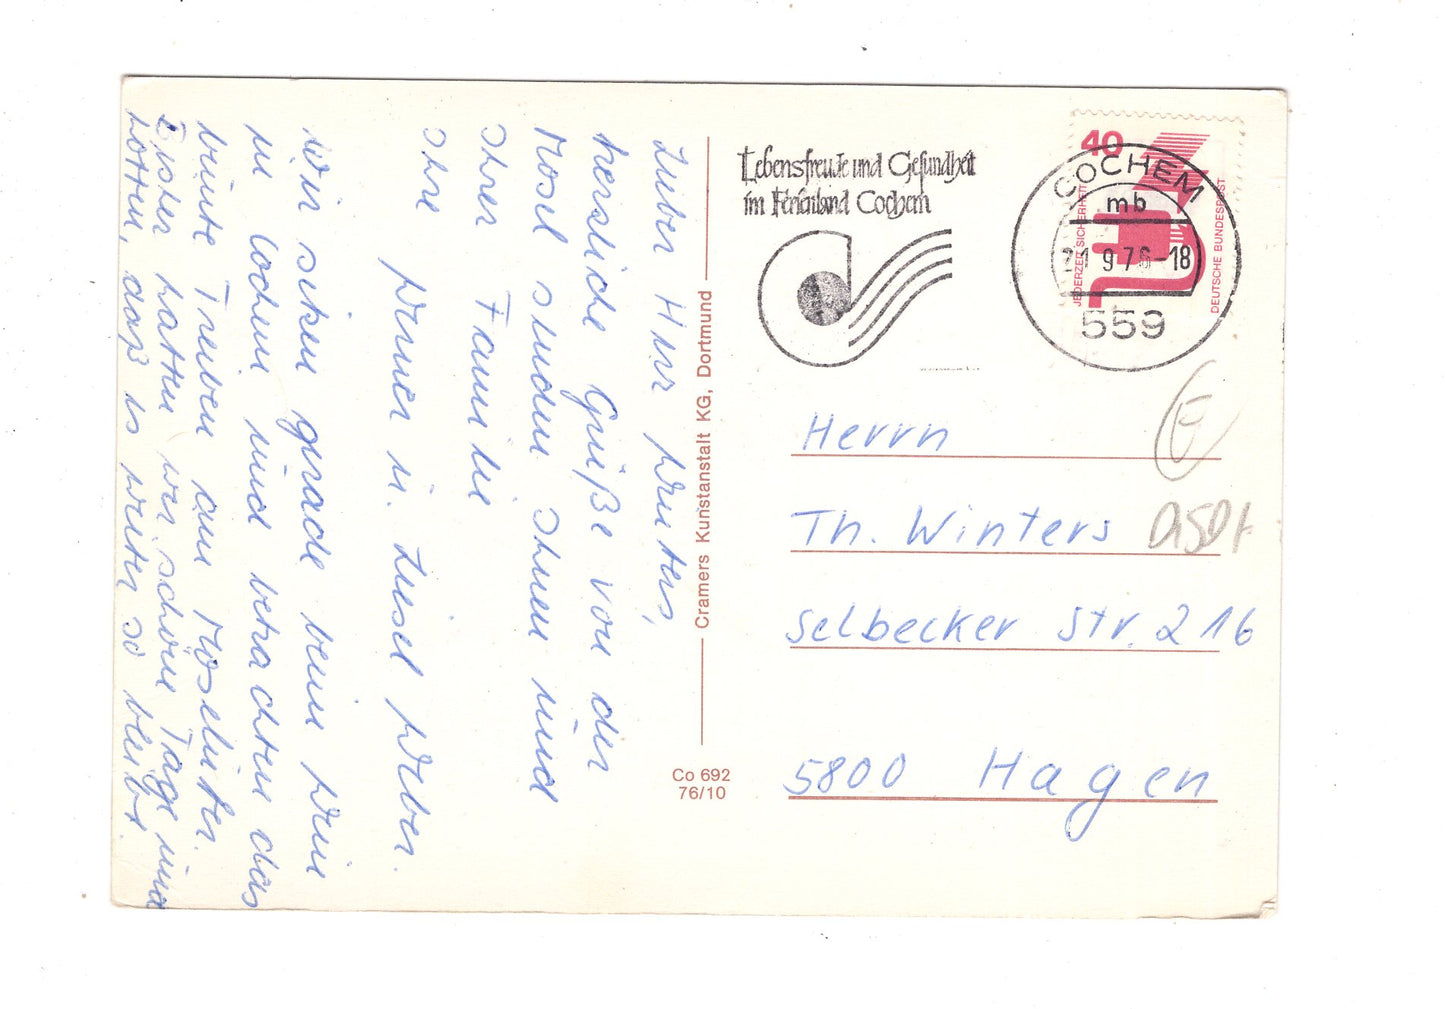 Lieber Herr Winters,
herzliche Grüße von der
Mosel senden Ihnen und
Ihrer Familie
Ihre Werner u. Liesel Weber.
Wir sitzen gerade beim Wein
in Cochem und betrachten das
bunte Treiben am Moselufer.
Bisher hatten wir schöne Tage und
hoffen, daß es weiter so bleibt.
Cramers Kunstanstalt KG, Dortmund
Co 692
76/10
Lebensfreude und Gesundheit
im Ferienland Cochem
40
JEDERZEIT SICHERHEIT
DEUTSCHE BUNDESPOST
COCHEM
mb
21.9.76-18
559
Herrn
Th. Winters
Selbecker Str. 216
5800 Hagen
E